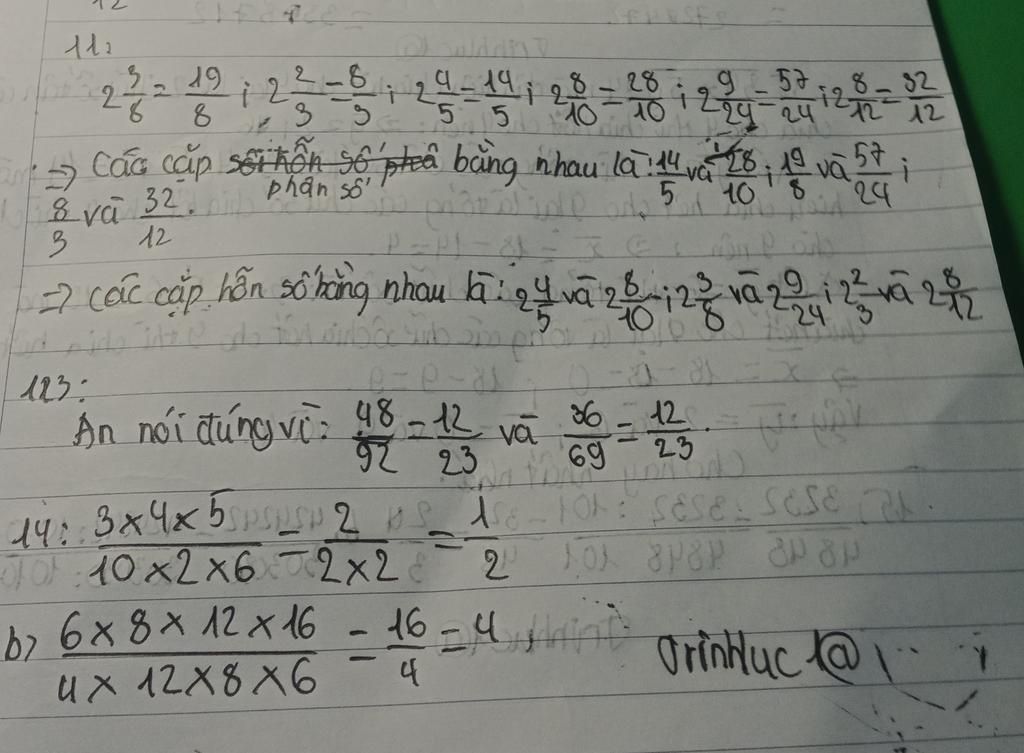 12
11:
2 3/8 = 19/8 ; 2 2/3 = 8/3 ; 2 4/5 = 14/5 ; 2 8/10 = 28/10 ; 2 9/24 = 57/24 ; 2 8/12 = 32/12
=> Các cặp phân số bằng nhau là: 14/5 và 28/10 ; 19/8 và 57/24 ;
8/3 và 32/12.
=> các cặp hỗn số bằng nhau là: 2 4/5 và 2 8/10 ; 2 3/8 và 2 9/24 ; 2 2/3 và 2 8/12
123:
An nói đúng vì: 48/92 = 12/23 và 36/69 = 12/23.
14: 3×4×5/10×2×6 = 2/2×2 = 1/2
b) 6×8×12×16/4×12×8×6 = 16/4 = 4